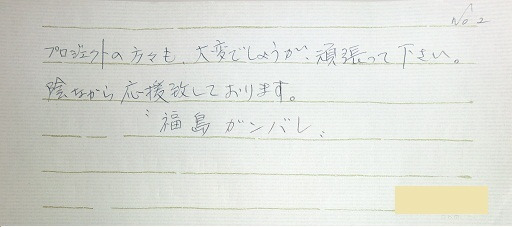 No 2
プロジェクトの方々も、大変でしょうが、頑張って下さい。
陰ながら応援致しております。
〝福島ガンバレ〟